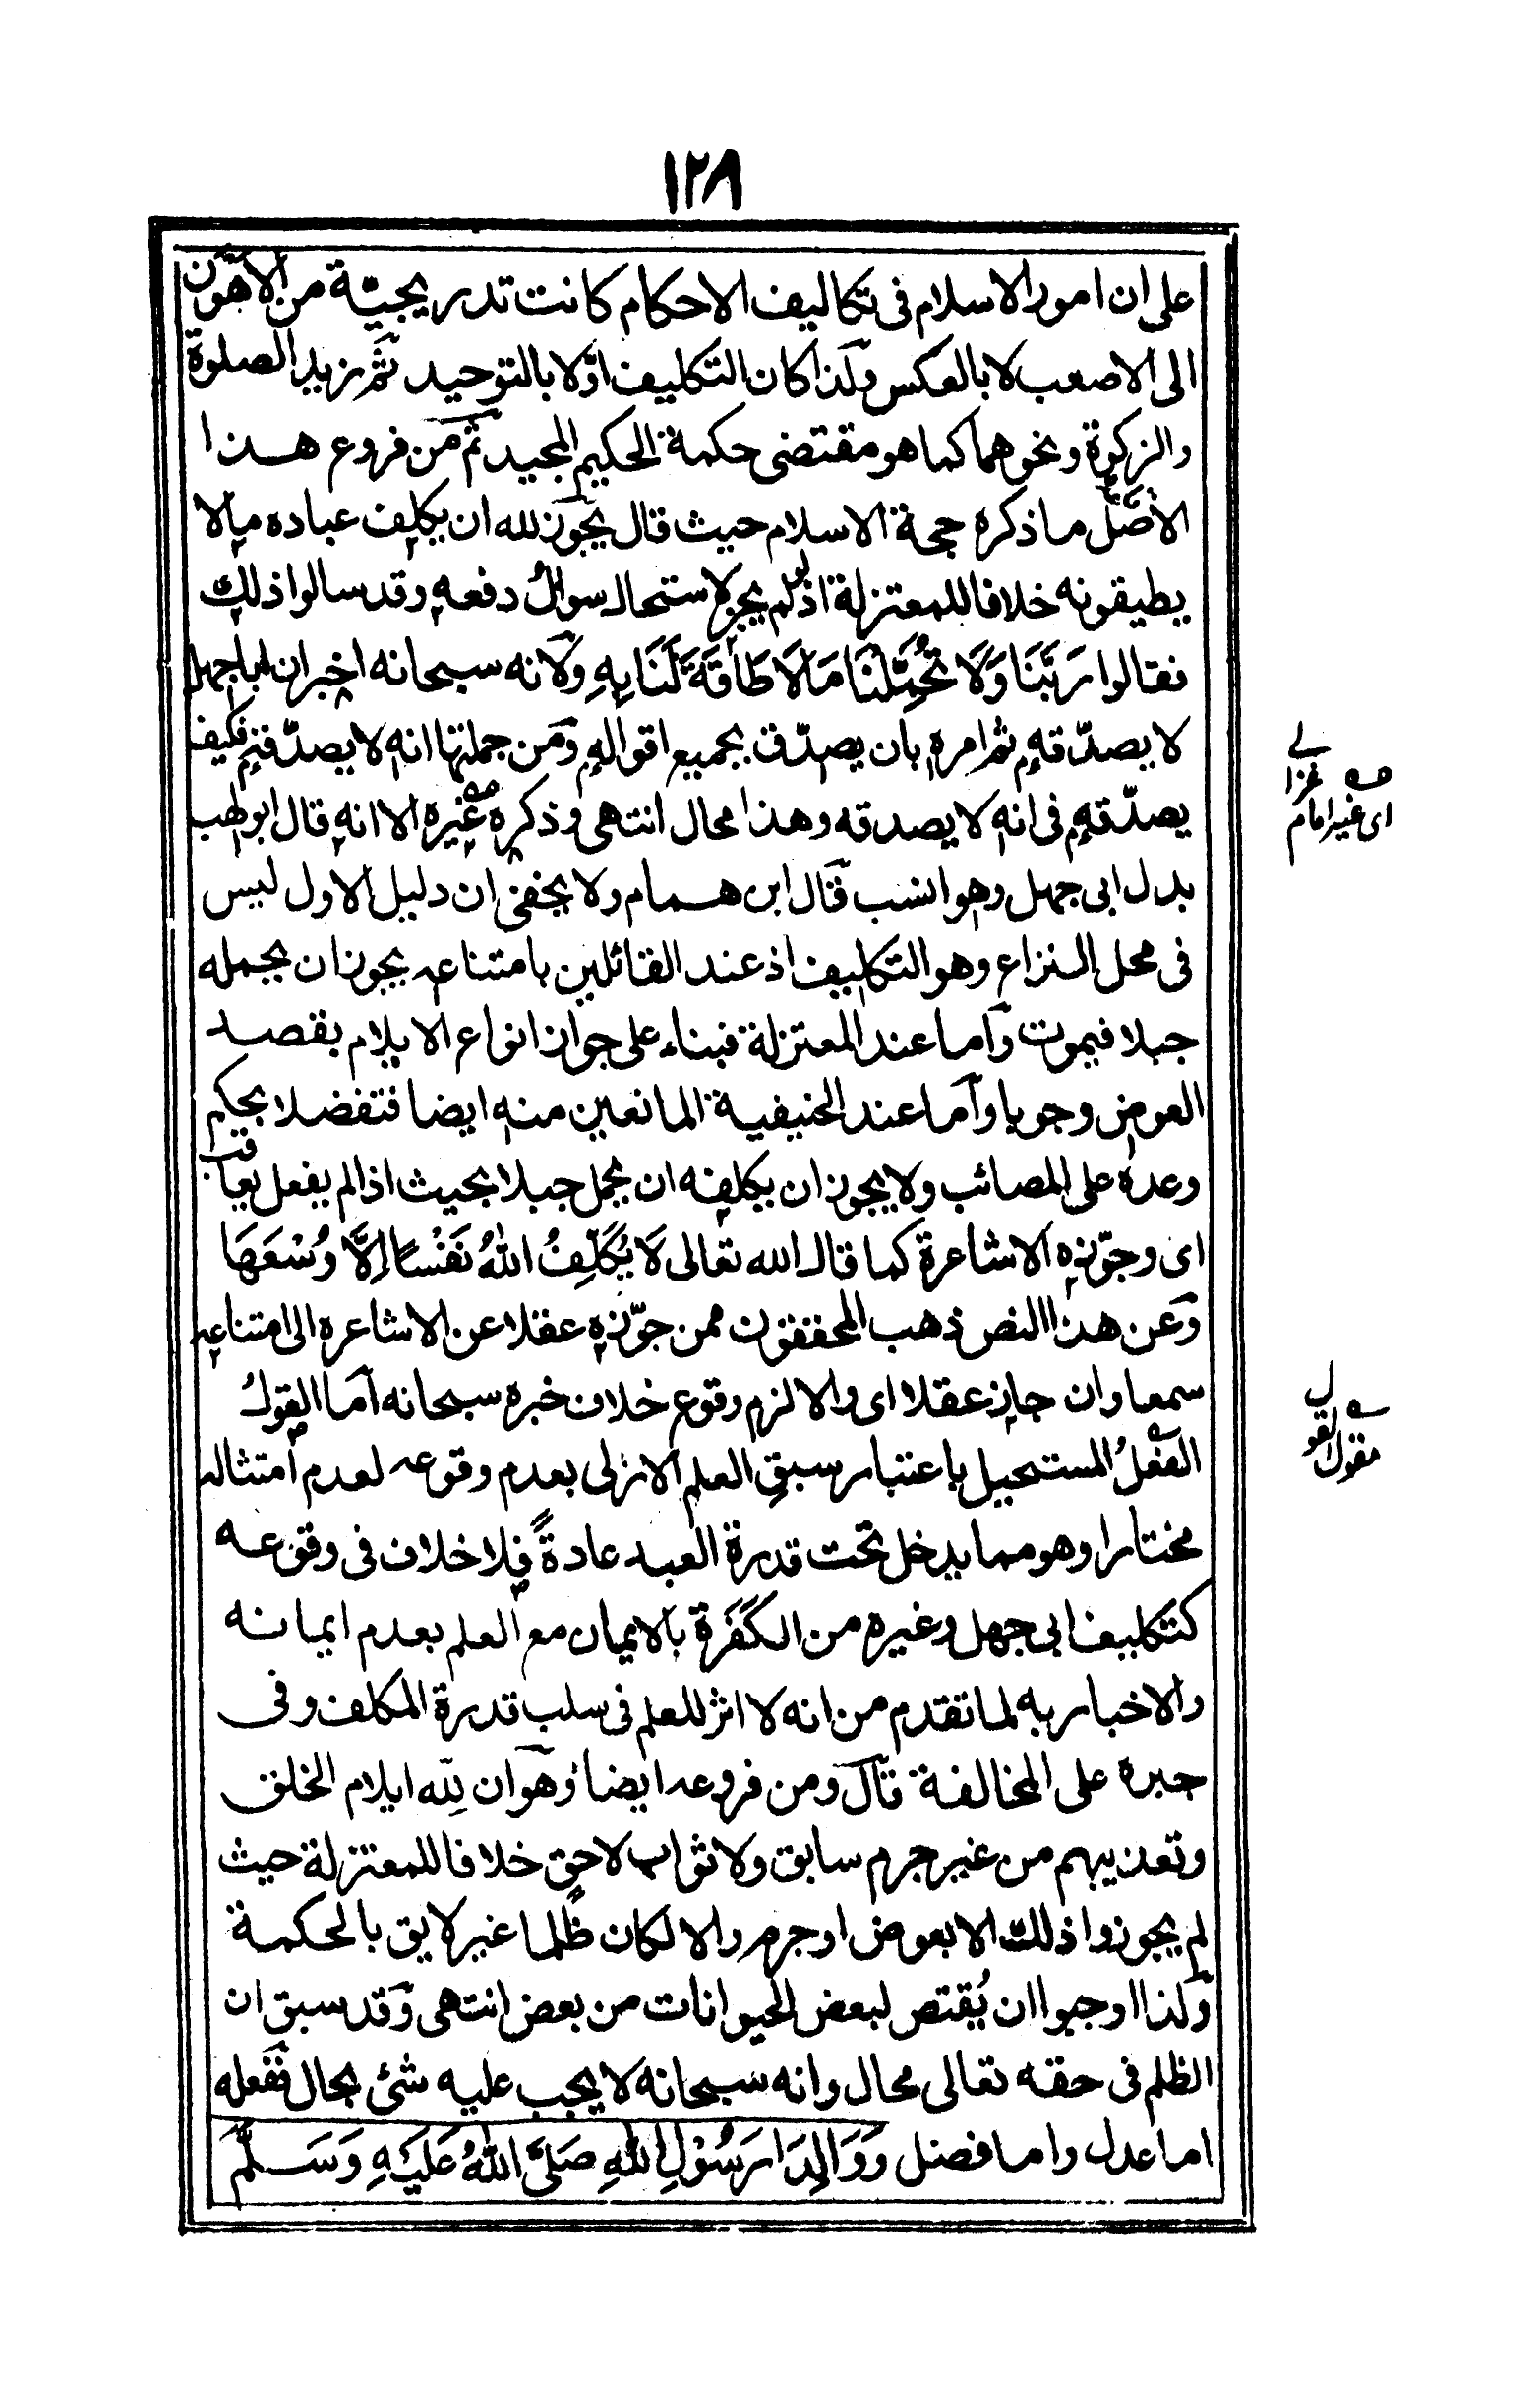 ١٢٨
على ان امور الاسلام فى تكاليف الاحكام كانت تدريجيّة من الاَهْوَن
الى الاصعب لا بالعكس ولذا كان التكليف اوّلا بالتوحيد ثم زيد الصلوة
والزكوة ونحوهما كما هو مقتضى حكمة الحكيم المجيد ثم من فروع هذا
الأصل ما ذكره حجة الاسلام حيث قال يجوز لله ان يكلف عباده مالا
يطيقونه خلافا للمعتزلة اذ لو لم يجز لاستحال سوالُ دفعه وقد سالوا ذلك
فقالوا رَبَّنَا وَلَا تُحَمِّلْنَا مَالَا طَاقَةَ لَنَا بِهِ ولانه سبحانه اخبر ان ابا جهل
لا يصدّقه ثم امره بان يصدّق بجميع اقواله ومن جملتها انه لا يصدّقه فكيف
يصدّقه فى انه لا يصدقه وهذا محال انتهى وذكره غيره الا انه قال ابو لهب
بدل ابى جهل وهو انسب قال ابن همام ولا يخفى ان دليل الاول ليس
فى محل النزاع وهو التكليف اذ عند القائلين بامتناعه يجوز ان يحمله
جبلا فيموت وأما عند المعتزلة فبناء على جواز انواع الايلام بقصد
العوض وجوبا وأما عند الحنيفية المانعين منه ايضا فتفضلا بحكم
وعده على المصائب ولا يجوز ان يكلفه ان يحمل جبلا بحيث اذا لم يفعل يعاقب
اى وجوّزه الاشاعرة كما قال الله تعالى لَا يُكَلِّفُ اللهُ نَفْسًا اِلَّا وُسْعَهَا
وعن هذا النص ذهب المحققون ممن جوّزه عقلا عن الاشاعرة الى امتناعه
سمعا وان جاز عقلا اى والا لزم وقوع خلاف خبره سبحانه أما القولُ
الفعلُ المستحيل باعتبار سبقِ العلم الازلى بعدم وقوعه لعدم امتثاله
مختارا وهو مما يدخل تحت قدرة العبد عادةً فلا خلاف فى وقوعه
كتكليف ابى جهل وغيره من الكَفَرَة بالايمان مع العلم بعدم ايمانه
والاخبار به لما تقدم من انه لا اثر للعلم فى سلب قدرة المكلف وفى
جبره على المخالفة قال ومن فروعه ايضا وهو ان لله ايلام الخلق
وتعذيبهم من غير جرم سابق ولا ثواب لاحق خلافا للمعتزلة حيث
لم يجوزوا ذلك الا بعوض او جرم والا لكان ظلما غير لايق بالحكمة
ولذا اوجبوا ان يُقتص لبعض الحيوانات من بعض انتهى وقد سبق ان
الظلم فى حقه تعالى محال وانه سبحانه لا يجب عليه شئ بحال ففعله
اما عدل واما فضل وَوَالِدَا رَسُوْلِ اللهِ صَلَّى اللهُ عَلَيْهِ وَسَلَّمَ
اى غير امام غزالى
مقول القول